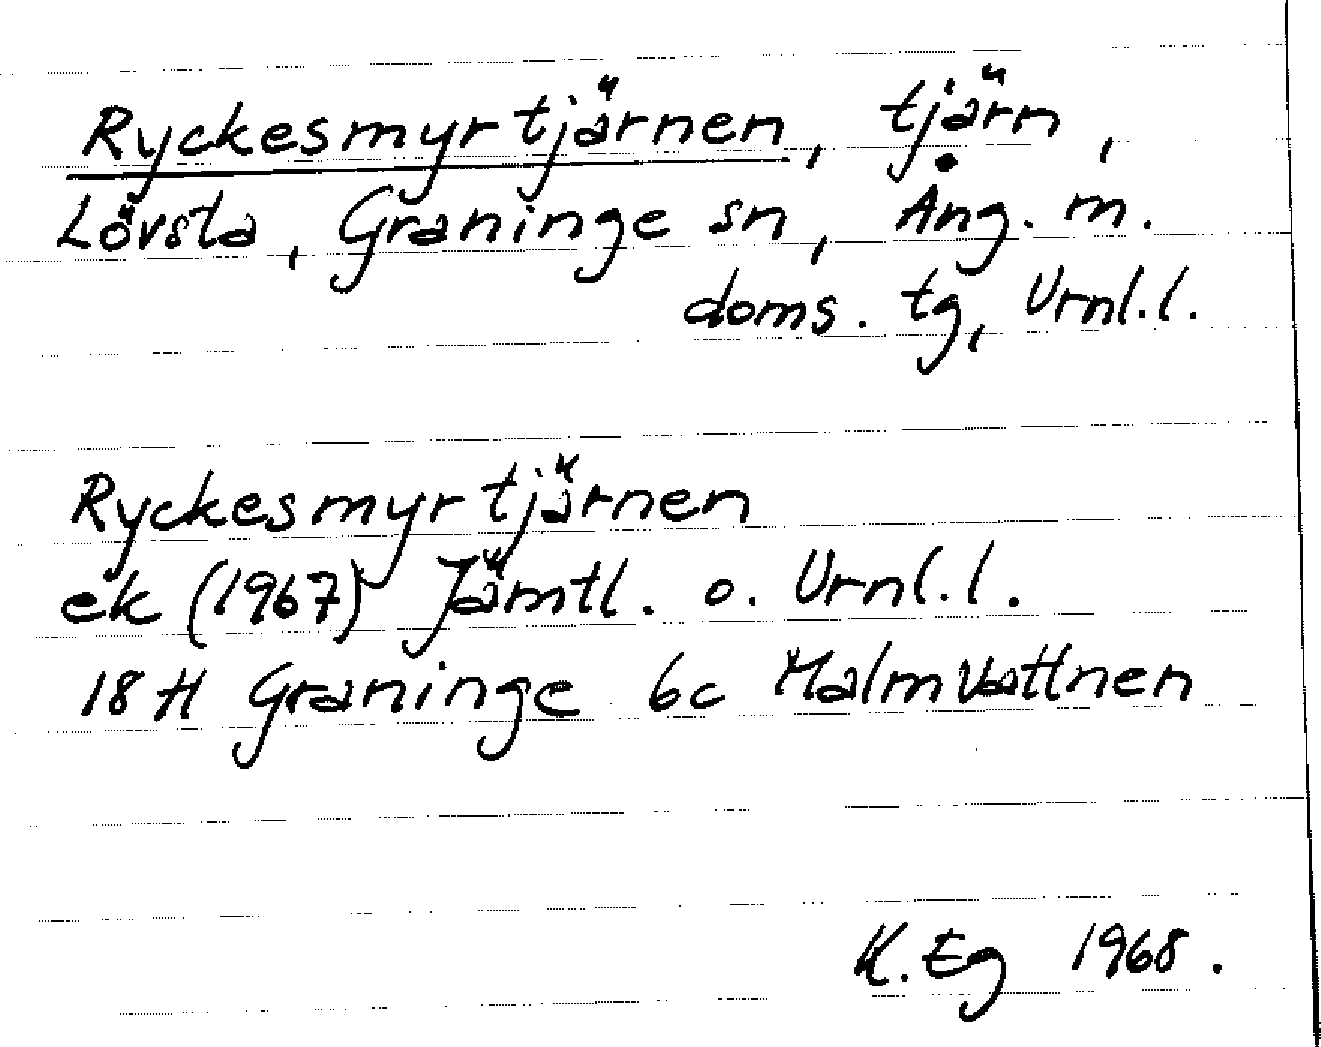 Ryckesmyrtjärnen, tjärn,
Lövsta, Graninge sn, Ång. m.
doms. tg, Vrnl.l.
Ryckesmyrtjärnen
ek (1967) Jämtl. o. Vrnl.l.
18H Graninge 6c Malmvattnen
K. Eg 1968.